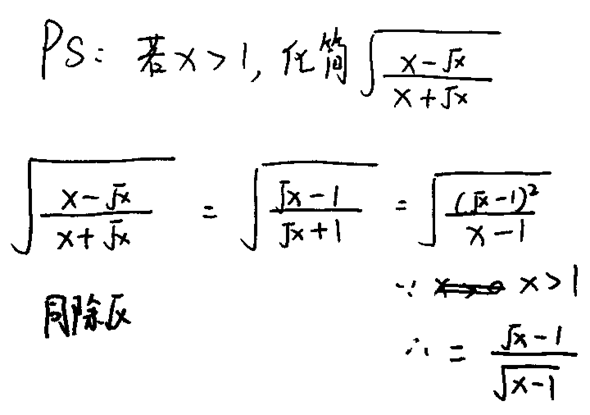 PS: 若x>1, 化简√((x-√x)/(x+√x))
√((x-√x)/(x+√x)) = √((√x-1)/(√x+1)) = √((√x-1)²/(x-1))
同除√x
∵ x>1
∴ = (√x-1)/√(x-1)